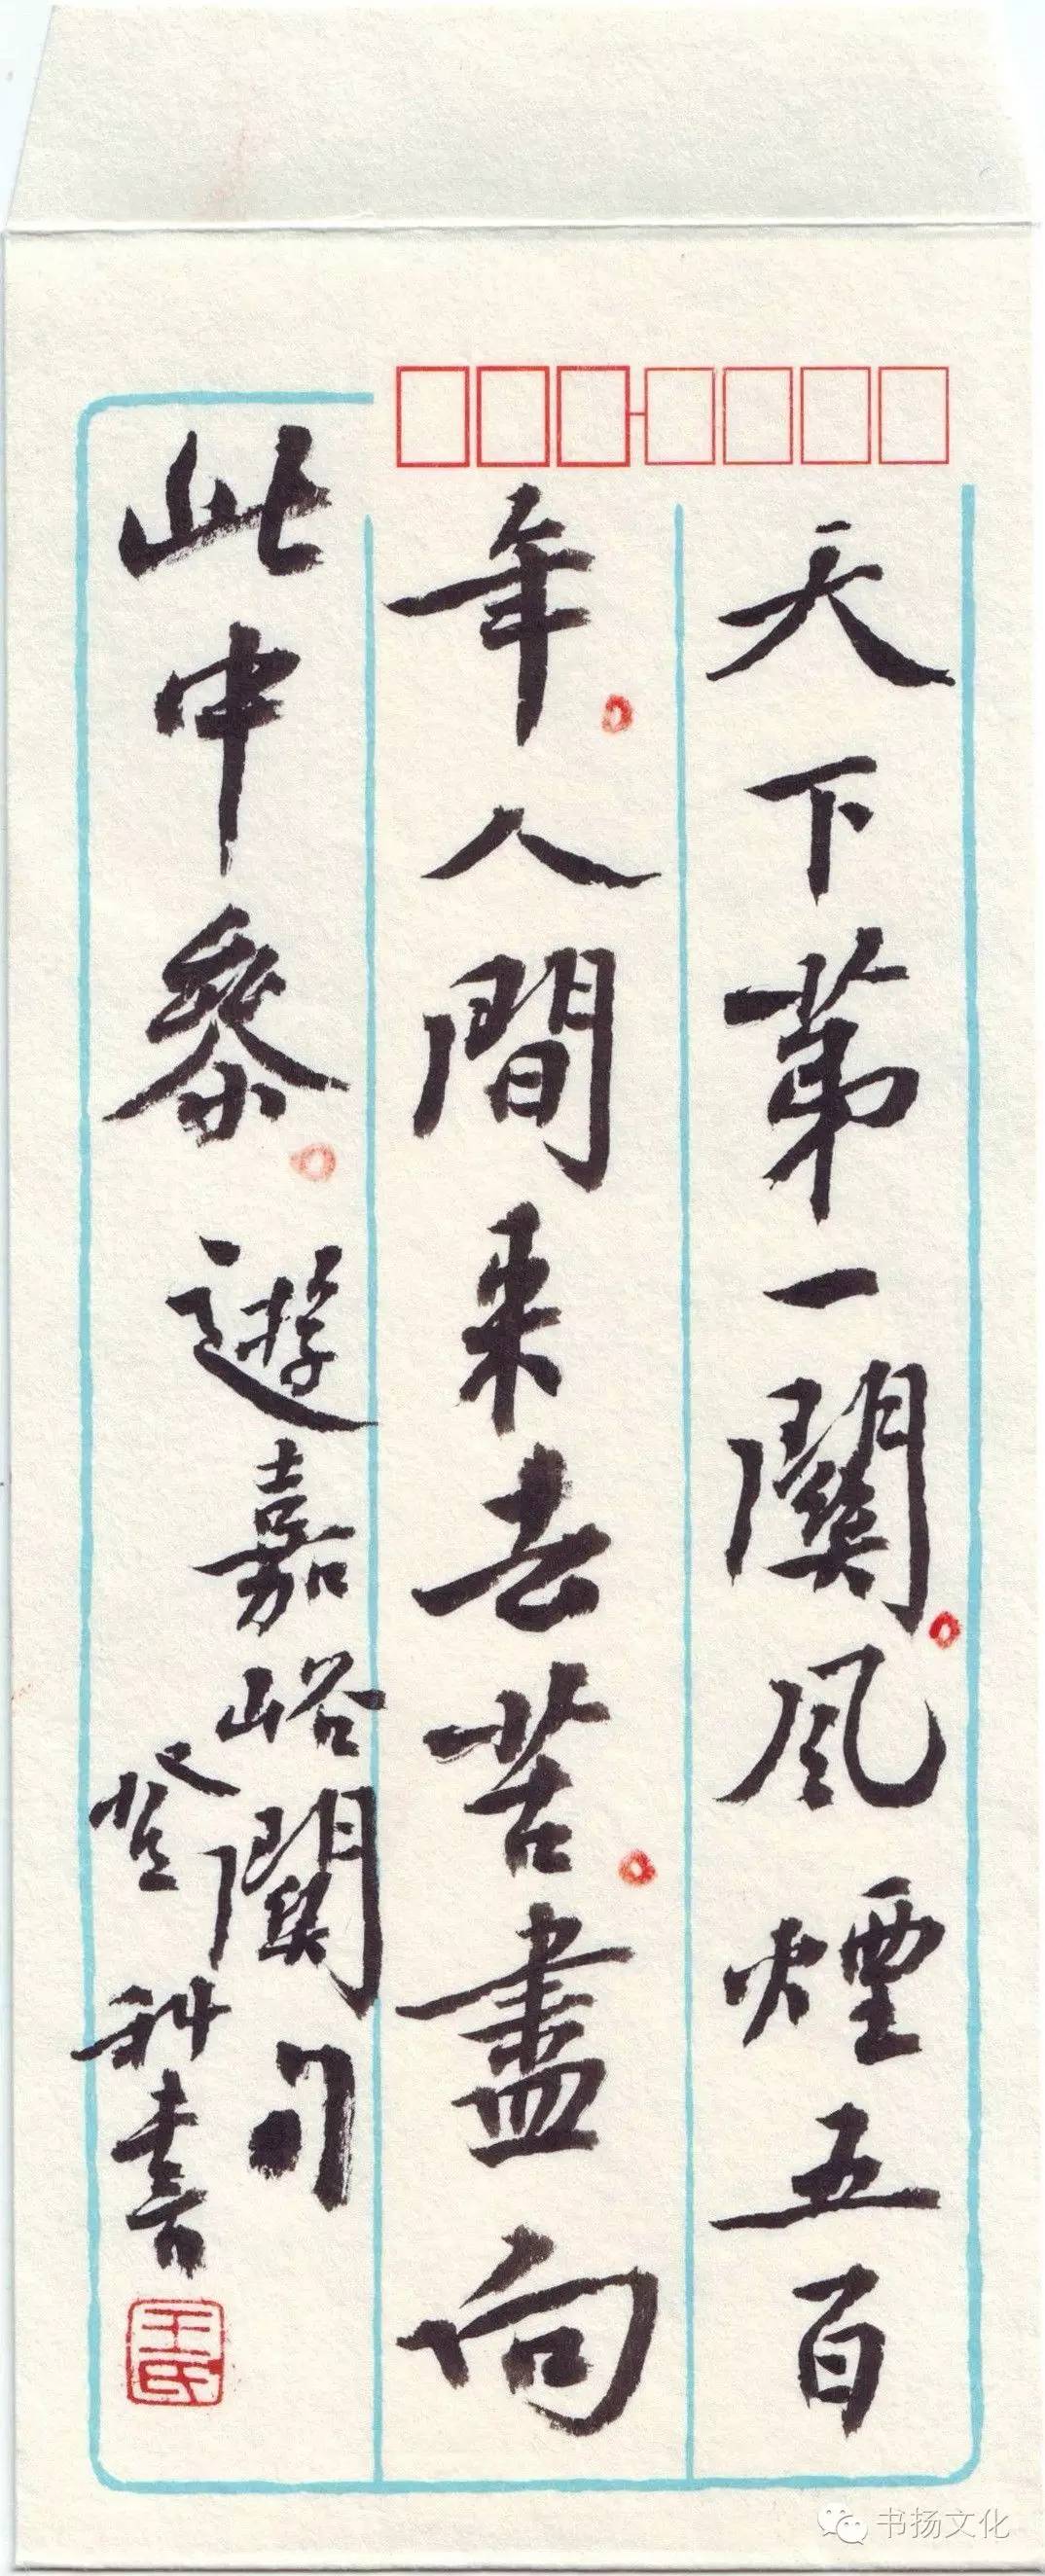 天下第一關風煙五百
年人間来去苦盡向
此中參遊嘉峪關句
登科書
王氏
书扬文化